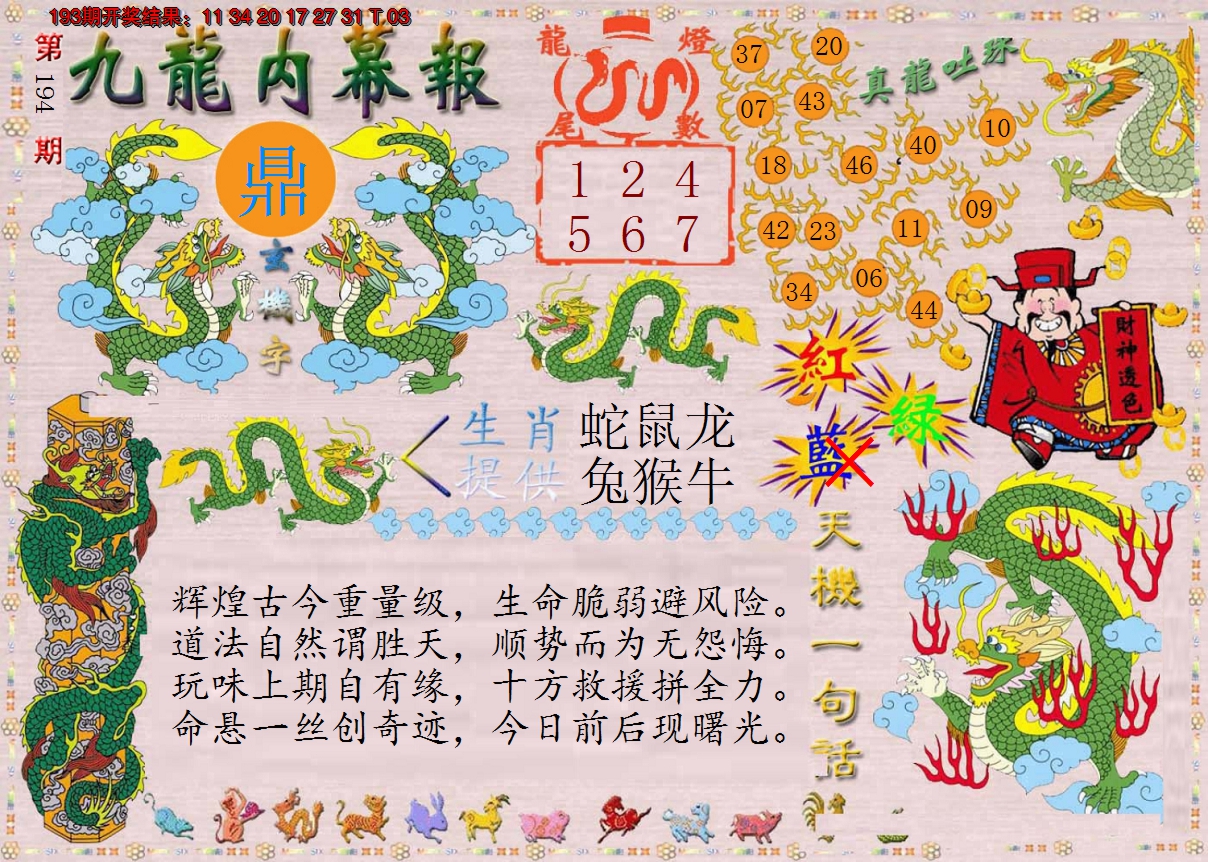 193期开奖结果：11 34 20 17 27 31 T 03
第194期
九龍内幕報
鼎
玄機字
龍燈
尾數
1 2 4
5 6 7
真龍吐珠
37 20
07 43
18 46 40 10
42 23 11 09
34 06 44
財神透色
紅
綠
藍
生肖 蛇鼠龙
提供 兔猴牛
天機一句话
辉煌古今重量级，生命脆弱避风险。
道法自然谓胜天，顺势而为无怨悔。
玩味上期自有缘，十方救援拼全力。
命悬一丝创奇迹，今日前后现曙光。